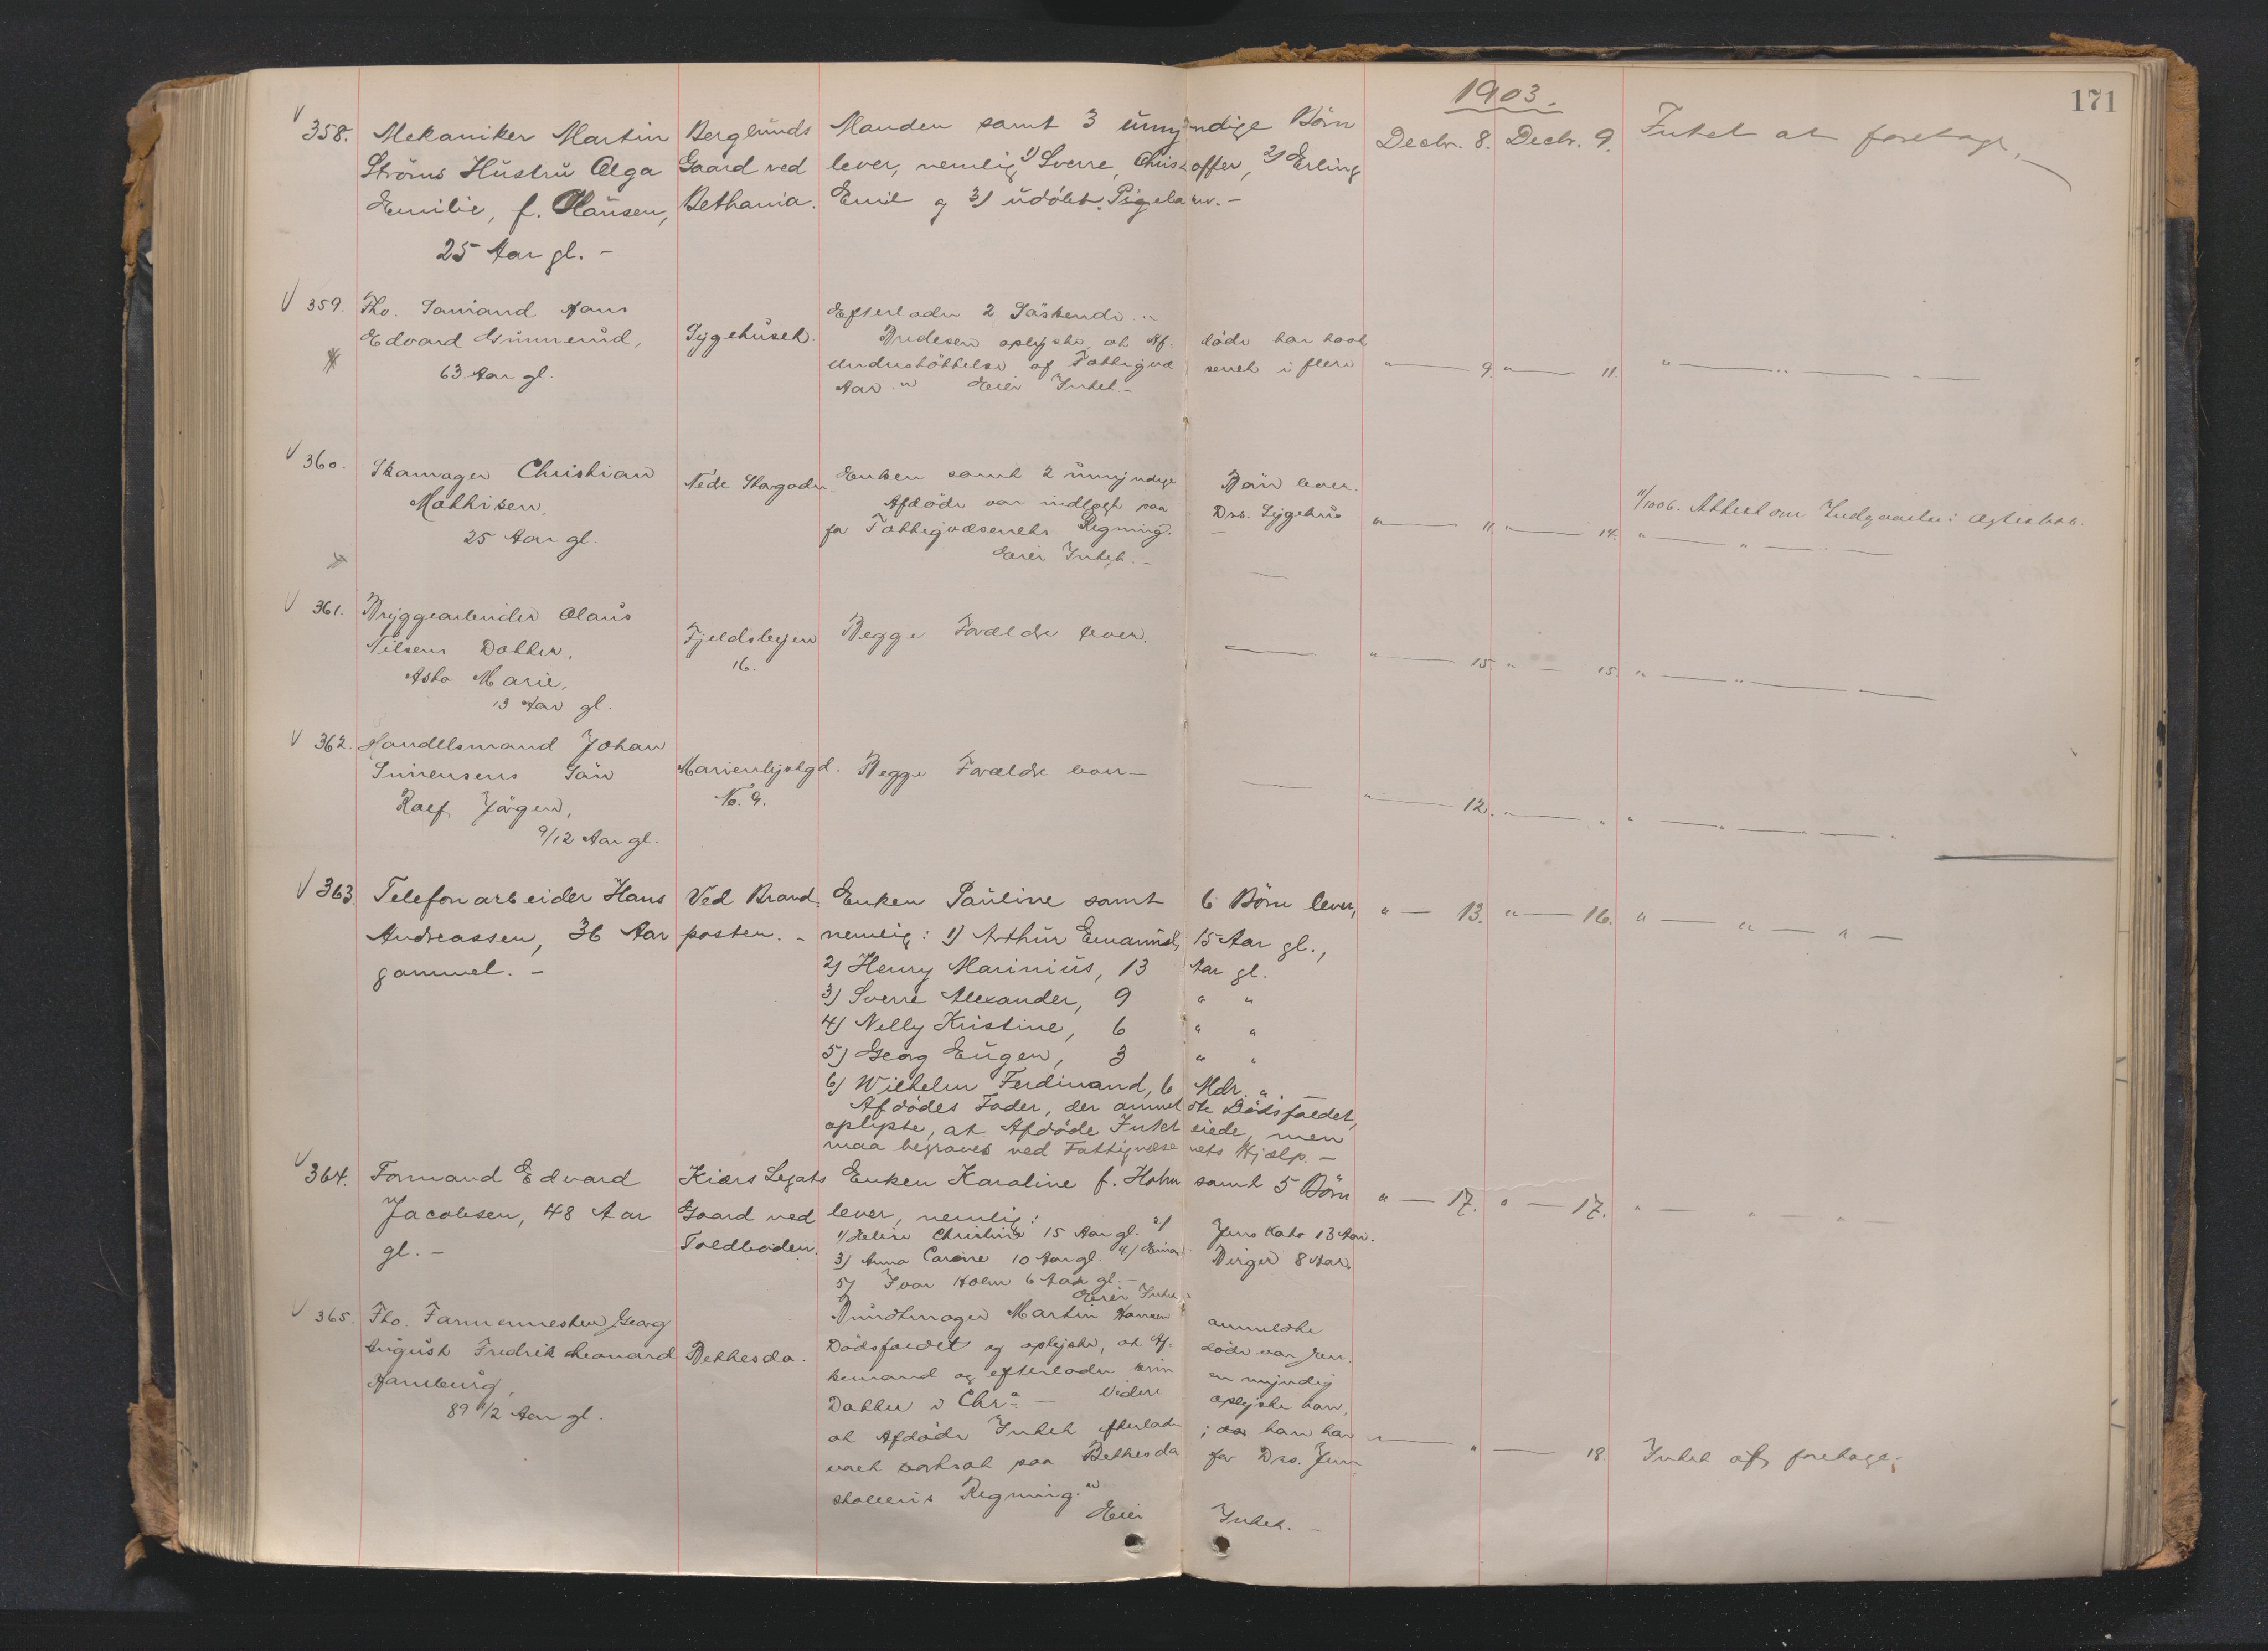 1903.
171
358. Mekaniker Martin Berglunds Manden samt 3 umyndige Börn Decbr. 8. Decbr. 9. Intet at foretage.
Ströms Hustru Olga Gaard ved lever, nemlig 1) Sverre Christoffer, 2) Erling
Emilie, f. Hansen, Bethania. Emil og 3) udöbt Pigebarn. -
25 Aar gl. -
359. Fho. Sömand Hans Efterlader 2 Söskende "
Edvard Gunnerud, Sygehuset. oplyste, at Afdöde har havt
63 Aar gl. Understöttelse af Fattigvæsenet i flere " 9. " 11. "
Aar." Eier Intet. -
360. Skomager Christian Nedre Enken samt 2 umyndige Börn lever.
Mathisen, Afdöde var indlagt paa Drs. Sygehus " 11. " 14. "
25 Aar gl. for Fattigvæsenets Regning. Attest om Indgaaelse i Ægteskab.
Eier Intet. -
361. Bryggearbeider Olaus Fjeldsbyen Begge Forældre lever. " 15. " 15. "
Nilsens Datter, 16.
Asta Marie,
13 Aar gl.
362. Handelsmand Johan
Sörensens Sön Marienlystgd. Begge Forældre lever - " 12. " "
Rolf Jörgen, No. 9.
9/12 Aar gl.
363. Telefonarbeider Hans Ved Brand- Enken Pauline samt 6 Börn lever, " - 13. " - 16. "
Andreassen, 36 Aar posten. - nemlig: 1) Arthur Emanuel, 15 Aar gl.,
gammel. - 2) Henry Marinius, 13 Aar gl.
3) Sverre Alexander, 9 " "
4) Nelly Kristine, 6 " "
5) Georg Eugen, 3 " "
6) Wilhelm Ferdinand, 6 Mdr. " . -
Afdödes Fader, der anmeldte Dödsfaldet,
oplyste, at Afdöde Intet eiede, men
maa begraves ved Fattigvæsenets Hjælp. -
364. Formand Edvard Kiærs Legats Enken Karoline f. Holm samt 5 Börn " - 17. " - 17. "
Jacobsen, 48 Aar Gaard ved lever, nemlig:
gl. - Toldboden. 1) Christine 15 Aar gl. 2) Jens Kato 13 Aar.
3) Anna 10 Aar gl. 4) Einar Birger 8 Aar.
5) Ivar Holm 6 Aar gl. -
Eier Intet
365. Fho. Farvermester Georg Bundtmager Martin Hansen anmeldte
August Fredrik Leonard Bethesda. Dödsfaldet og oplyste, at Afdöde var Enkemand
Hamburg, og efterlader kun en myndig
89 1/2 Aar gl. Datter i Chra. - Videre oplyste han,
at Afdöde Intet efterlader; han har
været bortsat paa Bethesda for Drs. " " 18. Intet at foretage.
Regning."
Eier Intet. -